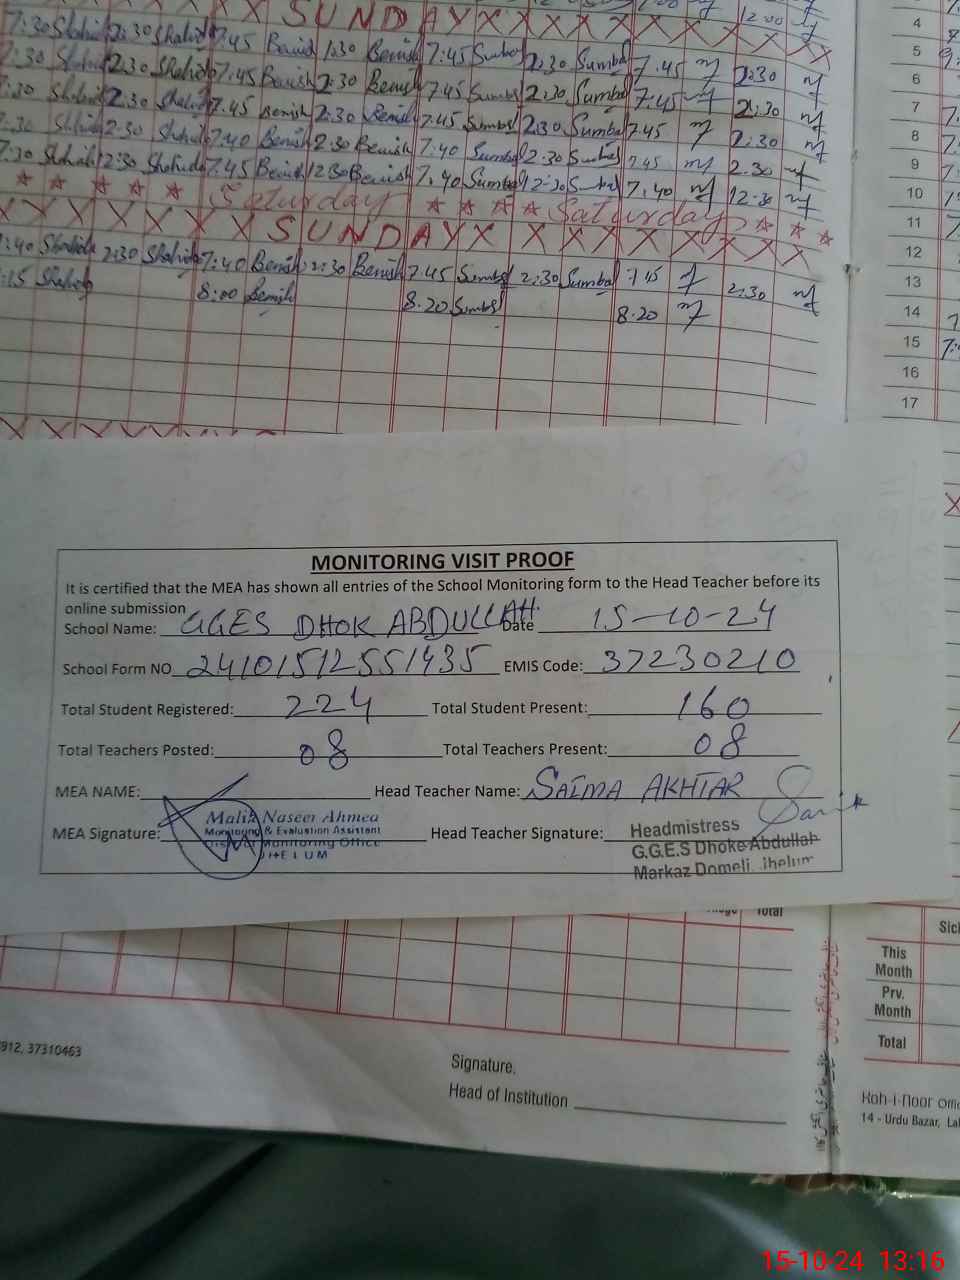 12:00
X X S U N D A Y X X X X X X X X X X
7:30 Shahid 2:30 Shahida 7:45 Benish 1:30 Benish 7:45 Sumbal 2:30 Sumbal 7:45 2:30
7:30 Shahida 2:30 Shahida 7:45 Benish 2:30 Benish 7:45 Sumbal 2:30 Sumbal 7:45 2:30
7:30 Shahid 2:30 Shahida 7:45 Benish 2:30 Benish 7:45 Sumbal 2:30 Sumbal 7:45 2:30
7:30 Shahida 2:30 Shahida 7:40 Benish 2:30 Benish 7:40 Sumbal 2:30 Sumbal 7:45 2:30
7:30 Shahida 12:30 Shahida 7:45 Benish 12:30 Benish 7:40 Sumbal 12:30 Sumbal 7:40 12:30
Saturday Saturday
X X X X X X X S U N D A Y X X X X X X X X X
7:40 Shahida 2:30 Shahida 7:40 Benish 2:30 Benish 7:45 Sumbal 2:30 Sumbal 7:45 2:30
8:15 Shahida 8:00 Benish 8:20 Sumbal 8:20
4
5
6
7
8
9
10
11
12
13
14
15
16
17
MONITORING VISIT PROOF
It is certified that the MEA has shown all entries of the School Monitoring form to the Head Teacher before its
online submission
School Name: GGES DHOK ABDULLAH. Date 15-10-24
School Form NO 24101512551435 EMIS Code: 37230210
Total Student Registered: 224 Total Student Present: 160
Total Teachers Posted: 08 Total Teachers Present: 08
MEA NAME: Head Teacher Name: SAIMA AKHTAR
MEA Signature: Head Teacher Signature:
Malik Naseer Ahmea
Monitoring & Evaluation Assistant
District Monitoring Office
JHELUM
Headmistress
G.G.E.S Dhoke Abdullah
Markaz Domeli, Jhelum
Total
This
Month
Prv.
Month
Total
912, 37310463
Signature.
Head of Institution
Koh-i-noor Offi
14 - Urdu Bazar, Lah
15-10-24 13:16